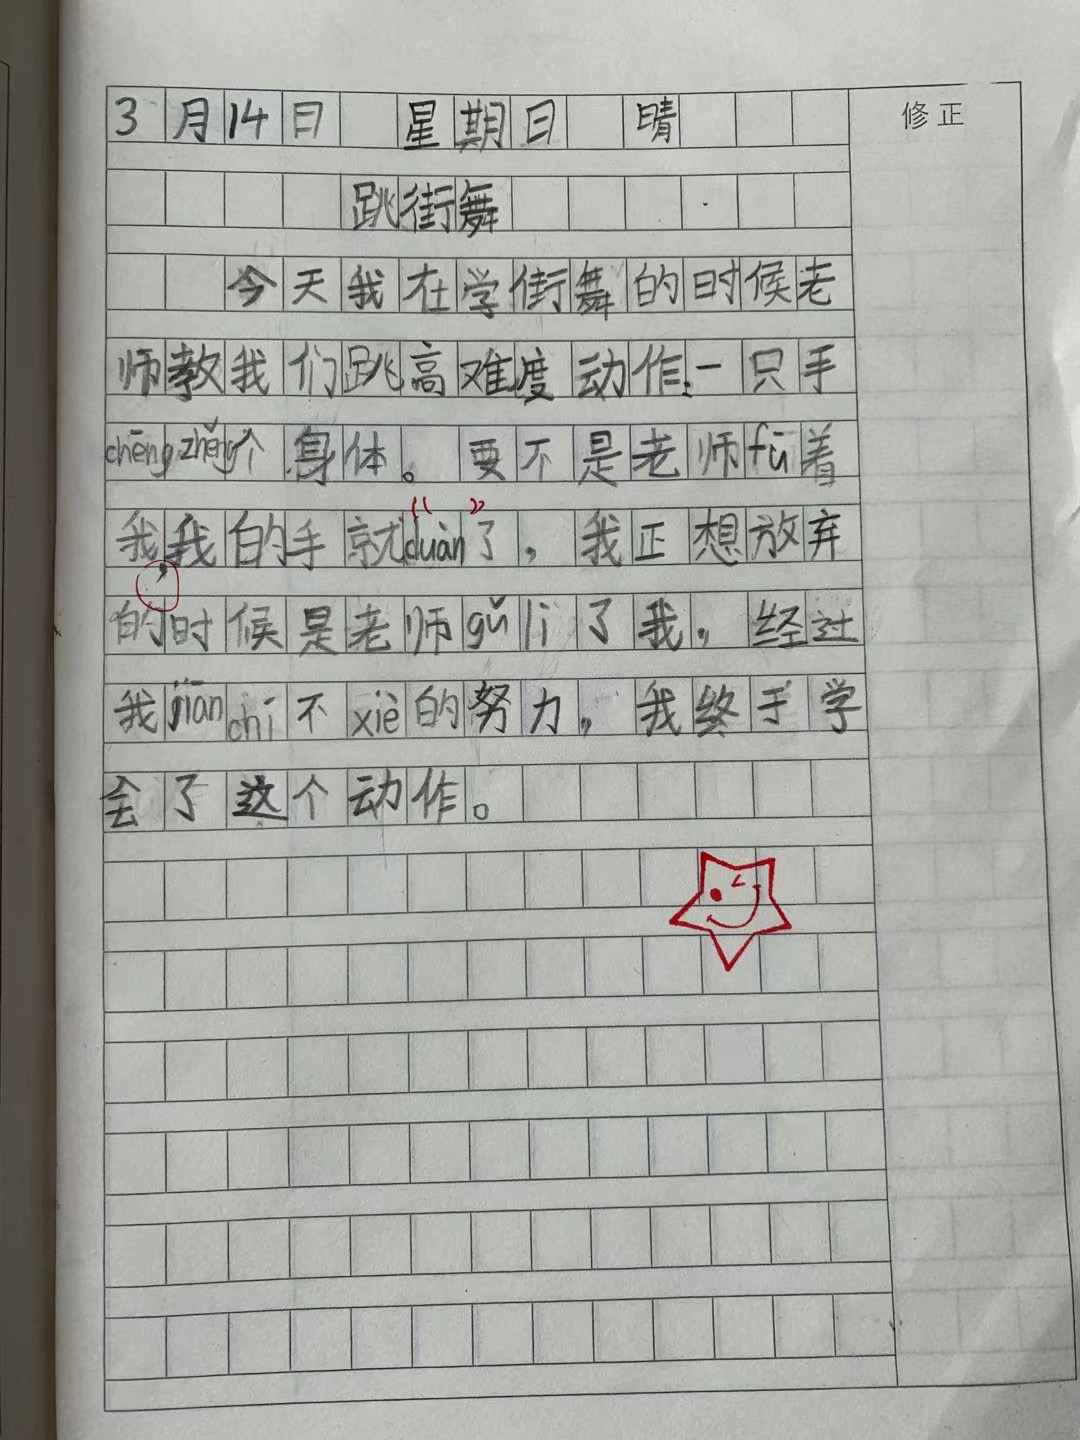 修正
3月14日 星期日 晴
跳街舞
今天我在学街舞的时候老
师教我们跳高难度动作:一只手
chēng zhěng个身体。要不是老师fú着
我,我的手就“duàn”了,我正想放弃
的时候是老师gǔ li了我,经过
我jiān chí不xiè的努力,我终于学
会了这个动作。